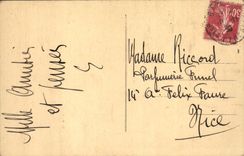 Mille amitiés
et pensées
Madame Riccord
Parfumerie
14 A. Felix Faure
Nice